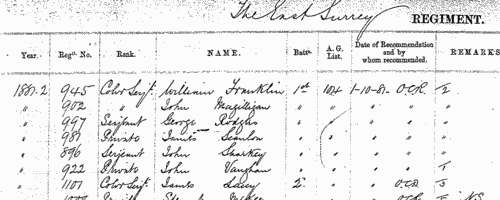 The East Surrey REGIMENT.
Year. Regtl. No. Rank. NAME. Batn. A. G. List. Date of Recommendation and by whom recommended. REMARKS
1881-2 945 Color Serjt. William Franklin 1st 104 1-10-81 O.C.R. 2
" 902 " John Magilligan " " " " "
" 997 Serjeant George Rodgers " " " " "
" 987 Private James Scanlon " " " " "
" 896 Serjeant John Sharkey " " " " "
" 922 Private John Vaughan " " " "
" 1101 Color Serjt. James Lacey 2 " " O.C.R.